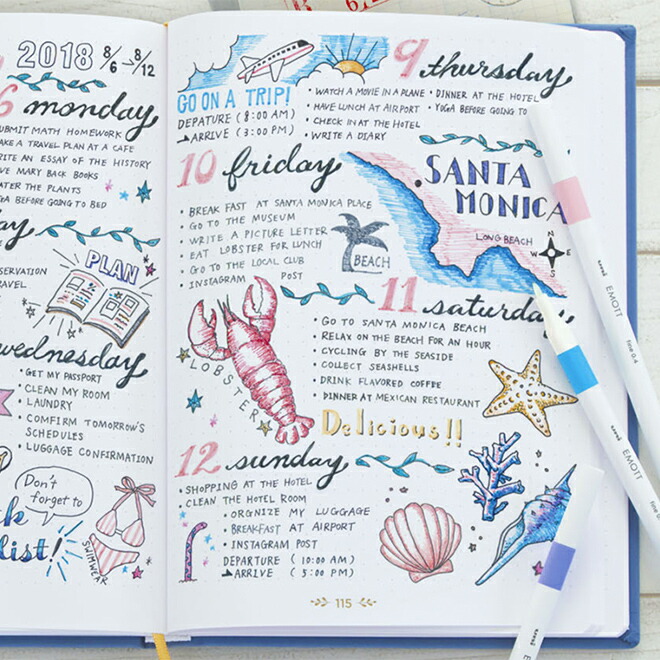 2018 8/6 → 8/12
6 monday
SUBMIT MATH HOMEWORK
MAKE A TRAVEL PLAN AT A CAFE
WRITE AN ESSAY OF THE HISTORY
MARY BACK BOOKS
WATER THE PLANTS
YOGA BEFORE GOING TO BED
PLAN
wednesday
• GET MY PASSPORT
• CLEAN MY ROOM
• LAUNDRY
• COMFIRM TOMORROW'S
SCHEDULES
• LUGGAGE CONFIRMATION
Don't
forget to
list!
SWIMWEAR
9 thursday
GO ON A TRIP!
DEPATURE (8:00 AM)
ARRIVE (3:00 PM)
• WATCH A MOVIE IN A PLANE
• HAVE LUNCH AT AIRPORT
• CHECK IN AT THE HOTEL
• WRITE A DIARY
• DINNER AT THE HOTEL
• YOGA BEFORE GOING TO
10 friday
• BREAK FAST AT SANTA MONICA PLACE
• GO TO THE MUSEUM
• WRITE A PICTURE LETTER
• EAT LOBSTER FOR LUNCH
• GO TO THE LOCAL CLUB
• INSTAGRAM POST
BEACH
SANTA
MONICA
LONG BEACH
N
W E
S
LOBSTER
11 saturday
• GO TO SANTA MONICA BEACH
• RELAX ON THE BEACH FOR AN HOUR
• CYCLING BY THE SEASIDE
• COLLECT SEASHELLS
• DRINK FLAVORED COFFEE
• DINNER AT MEXICAN RESTAURANT
Delicious!!
12 sunday
• SHOPPING AT THE HOTEL
• CLEAN THE HOTEL ROOM
• ORGNIZE MY LUGGAGE
• BREAKFAST AT AIRPORT
• INSTAGRAM POST
DEPARTURE (10:00 AM)
ARRIVE (5:00 PM)
115
uni EMOTT fine 0.4
uni EMOTT fine
uni